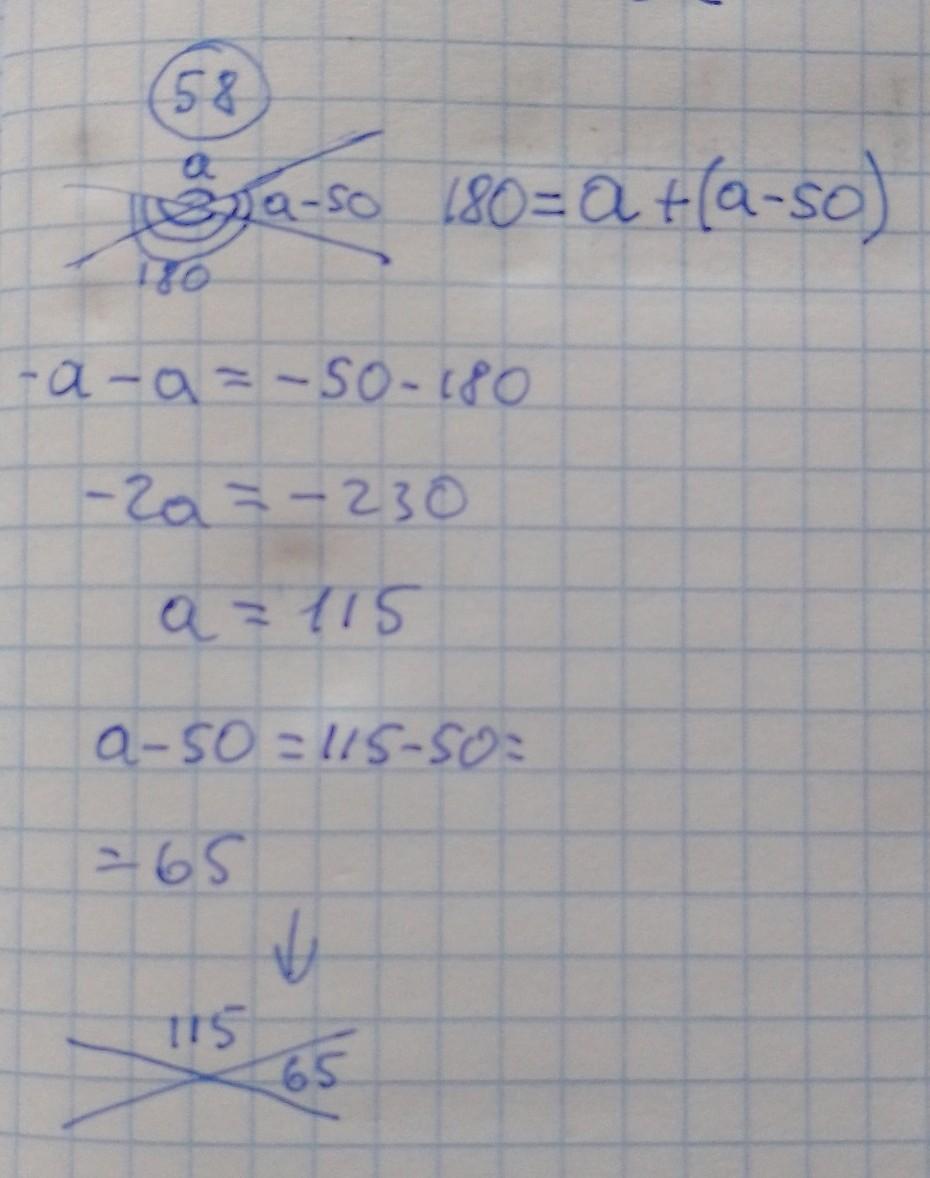 58
a
a-50 180=a+(a-50)
180
-a-a=-50-180
-2a=-230
a=115
a-50=115-50=
=65
↓
115
65